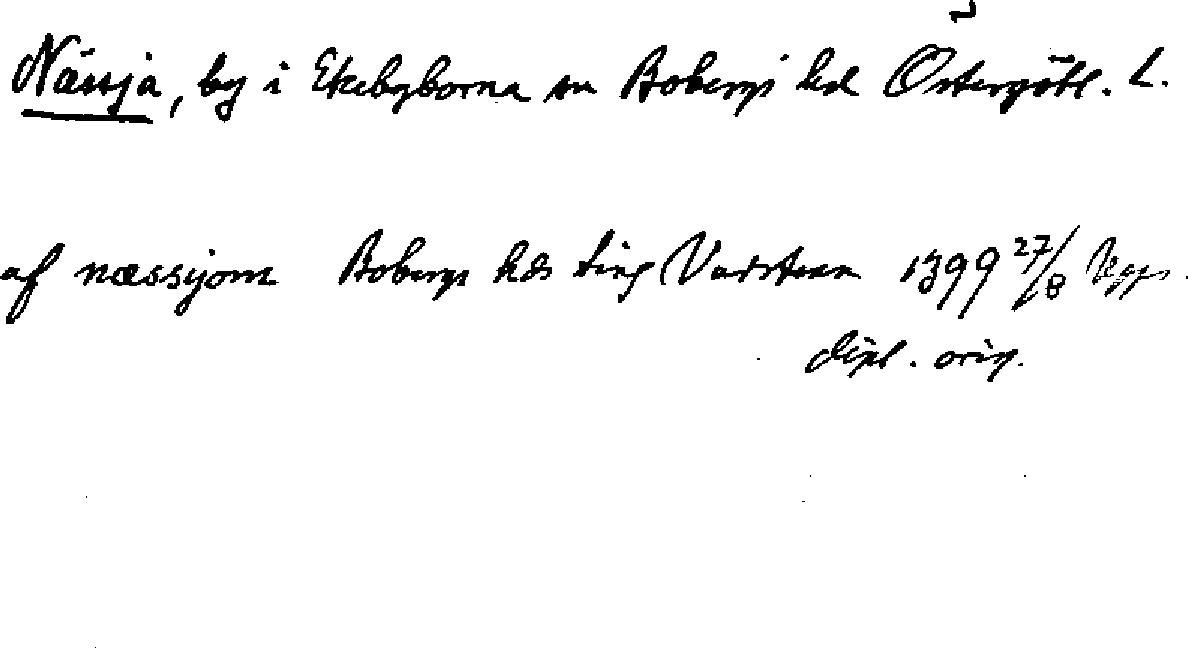 Nässja, by i Ekebyborna sn Bobergs hd Östergötl. L.
af næssijom Bobergs hds ting Vadstena 1399 27/8
dipl. orig.